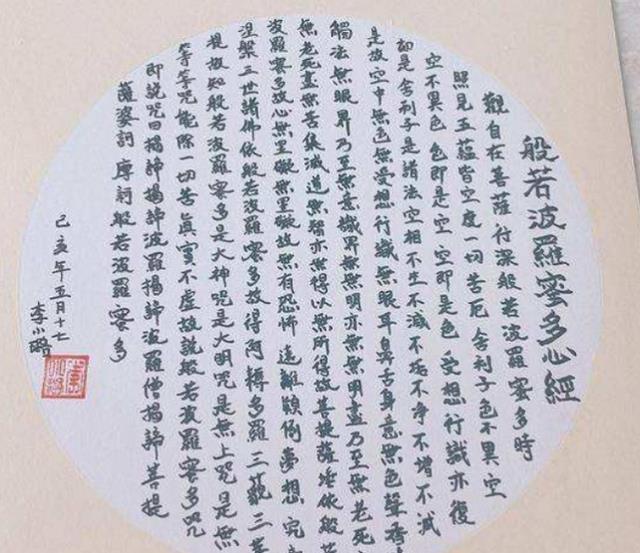 般若波羅蜜多心經
觀自在菩薩行深般若波羅蜜多時
照見五蘊皆空度一切苦厄 舍利子色不異空
空不異色 色即是空 空即是色 受想行識亦復
如是舍利子是諸法空相不生不滅不垢不净不增不減
是故空中無色無受想行識無眼耳鼻舌身意無色聲香
觸法無眼界乃至無意識界無無明亦無無明盡乃至無老死
無老死盡無苦集滅道無智亦無得以無所得故菩提薩埵依般若
波羅蜜多故心無罣礙無罣礙故無有恐怖遠離顛倒夢想究
涅槃三世諸佛依般若波羅蜜多故得阿耨多羅三藐三菩
提故知般若波羅蜜多是大神咒是大明咒是無上咒是無
等等咒能除一切苦真實不虛故說般若波羅蜜多咒
即說咒曰揭諦揭諦波羅揭諦波羅僧揭諦菩提
薩婆訶 摩訶般若波羅蜜多
己亥年五月十七
李小璐